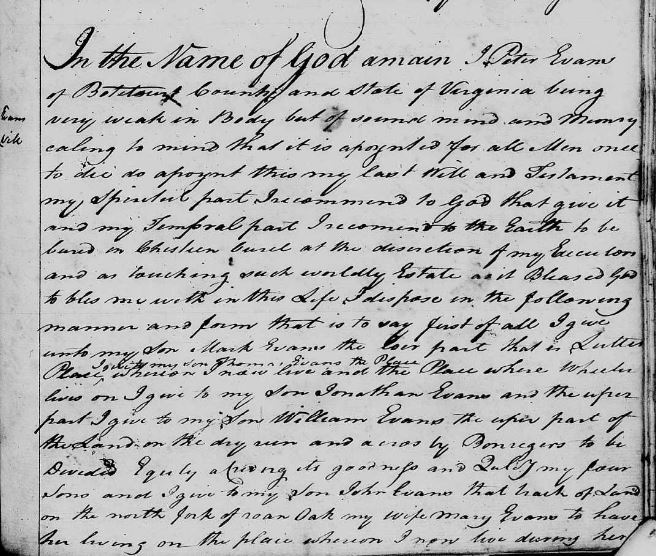 In the Name of God amain I Peter Evans
of Botetourt County and State of Virginia being
very weak in Body but of sound mind and Memry
caling to mind that it is apoynted for all Men once
to die do apoynt this my last Will and Testament
my Spiritul part I recommend to God that give it
and my Temporal part I recomend to the Earth to be
bured in Christien burel at the discretion of my Executors
and as touching such worldly Estate as it Pleased God
to bles me with in this Life I dispose in the following
manner and form that is to say first of all I give
unto my Son Mark Evans the loer part that is
I give to my son Thomas Evans the Place
Place, whereon I now live and the Place where Wheeler
lives on I give to my Son Jonathan Evans and the uper
part I give to my Son William Evans the uper part of
the Land on the dry run and acros by to be
Devided Equely acording its goodness and my four
Sons and I give to my Son John Evans that track of Land
on the north fork of roan Oak my wife Mary Evans to have
her living on the place whereon I now live during her
Evans